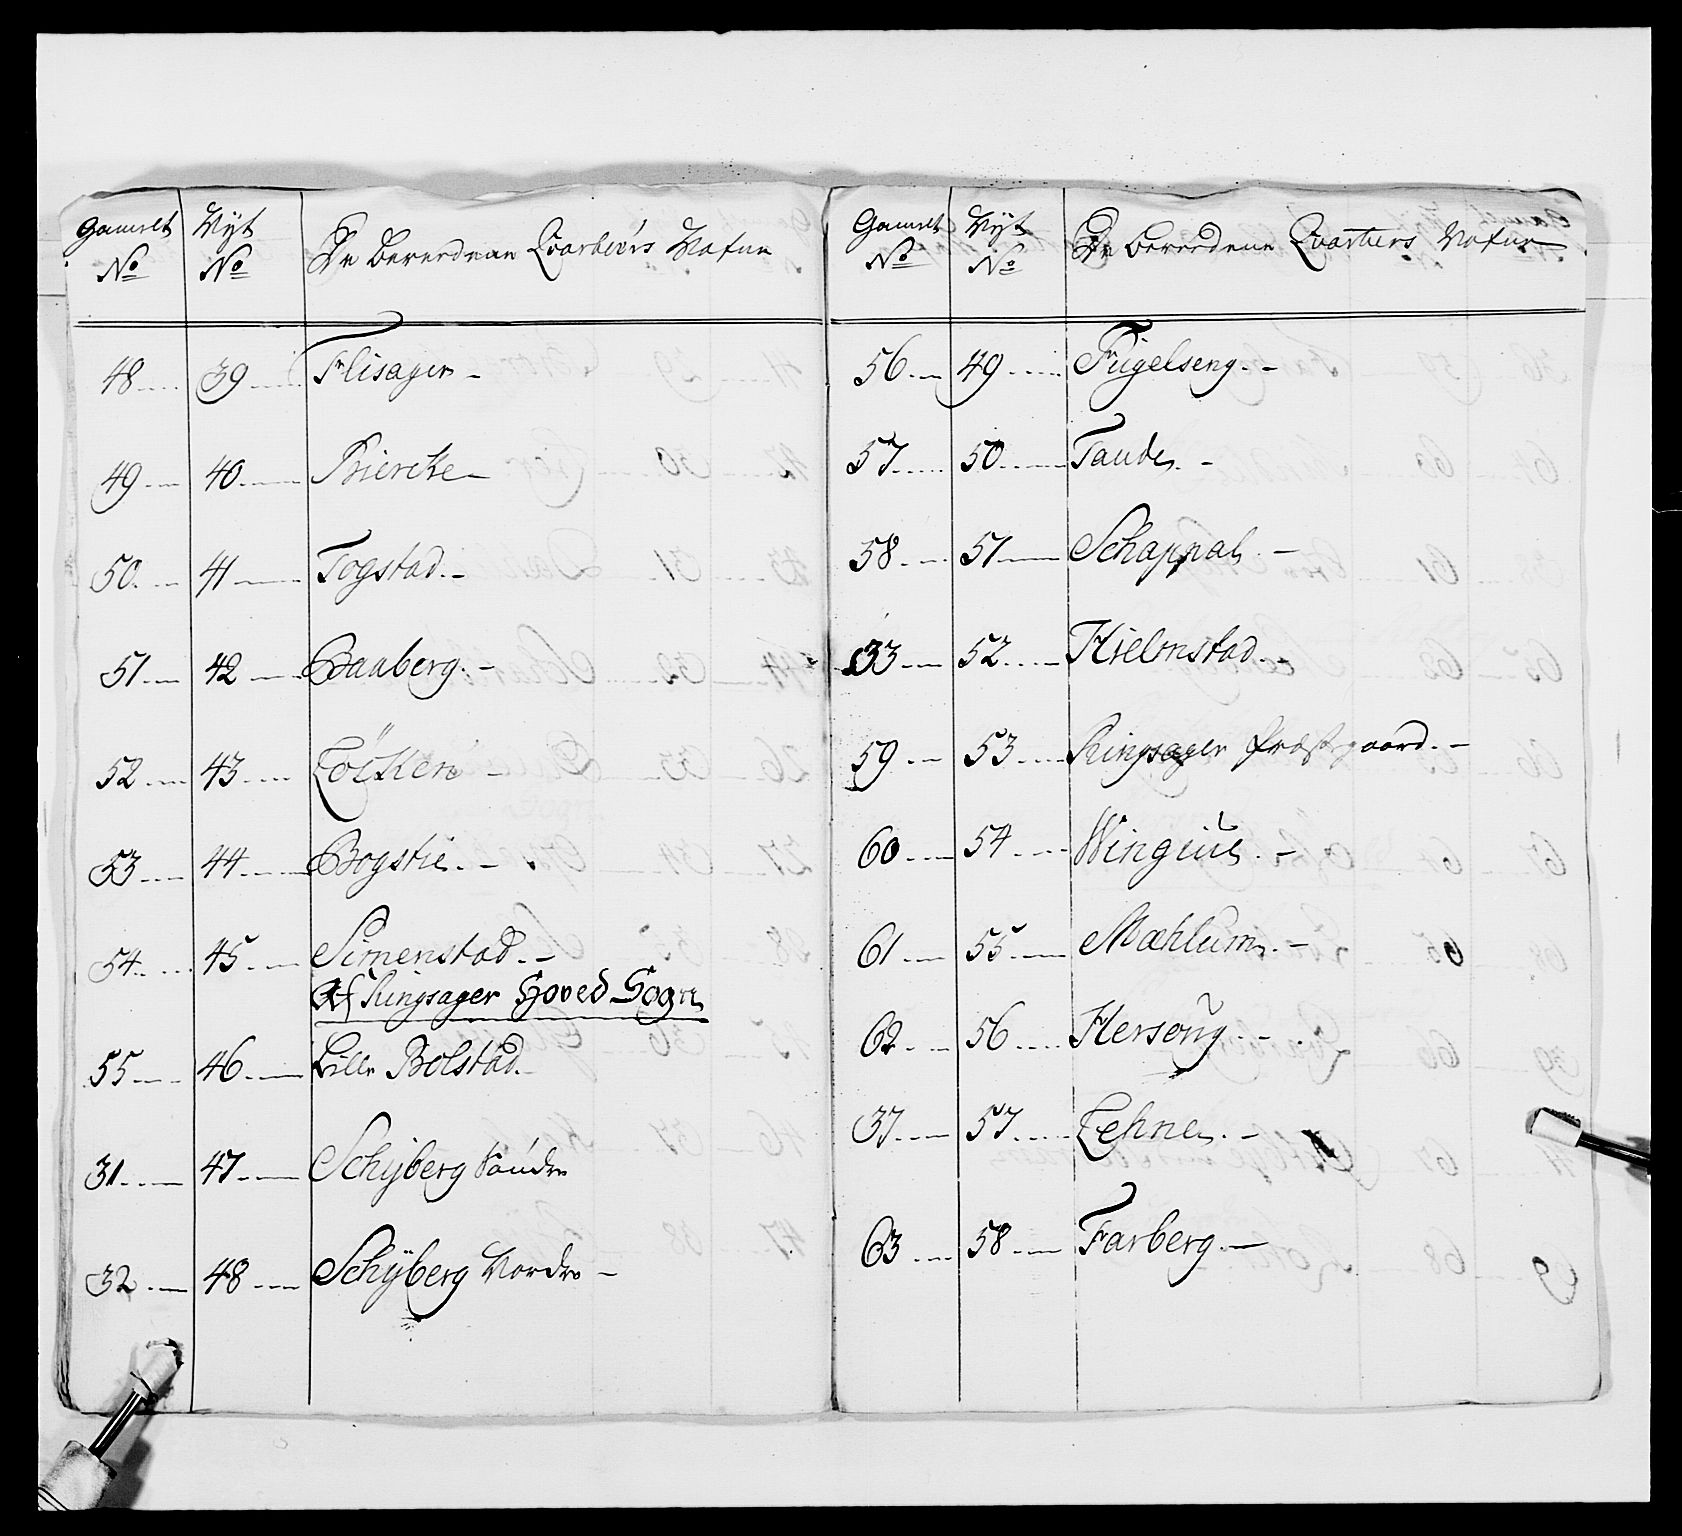 Gamelt No Nyt No De Beredene Qvarteers Nafne
48 39 Flisager
49 40 Biercke
50 41 Togstad
51 42 Baaberg
52 43 Löcken
53 44 Bogstie
54 45 Simenstad
Af Ringsager Hoved Sogn
55 46 Lille Bolstad
31 47 Schÿberg Söndre
32 48 Schÿberg Nordre
Gamelt No Nyt No De Beredene Qvarteers Nafne
56 49 Fugelseng
57 50 Taude
58 51 Schappal
33 52 Hielmstad
59 53 Ringsager Præstegaard
60 54 Wingius
61 55 Mæhlum
62 56 Hersoug
37 57 Lehne
63 58 Farberg